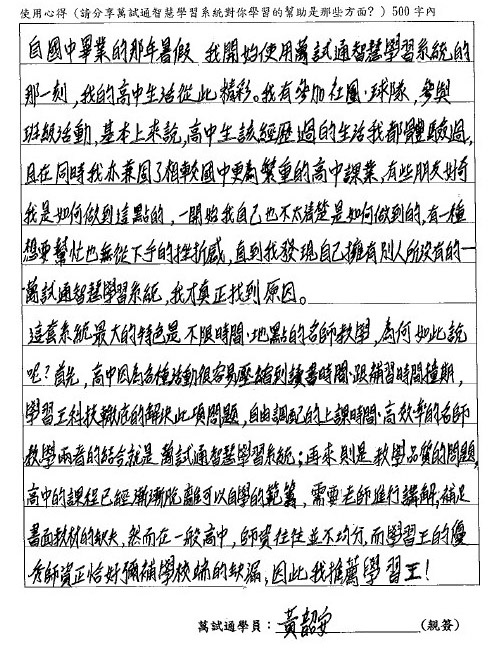 使用心得（請分享萬試通智慧學習系統對你學習的幫助是那些方面？）500字內
自國中畢業的那年暑假，我開始使用萬試通智慧學習系統的
那一刻，我的高中生活從此精彩。我有參加社團、球隊，參與
班級活動，基本上來說，高中生該經歷過的生活我都體驗過，
且在同時我亦兼固了相較國中更為繁重的高中課業，有些朋友好奇
我是如何做到這點的，一開始我自己也不太清楚是如何做到的，有一種
想要幫忙也無從下手的挫折感，直到我發現自己擁有別人所沒有的—
萬試通智慧學習系統，我才真正找到原因。
這套系統最大的特色是不限時間、地點的名師教學，為何如此說
呢？首先，高中因為各種活動很容易壓縮到讀書時間、跟補習時間撞期，
學習王科技徹底的解決此項問題，自由調配的上課時間、高效率的名師
教學兩者的結合就是萬試通智慧學習系統；再來則是教學品質的問題，
高中的課程已經漸漸脫離可以自學的範籌，需要老師進行講解，補足
書面教材的缺失，然而在一般高中，師資往往並不均分，而學習王的優
秀師資正恰好彌補學校端的缺漏，因此我推薦學習王！
萬試通學員：黃韶安（親簽）